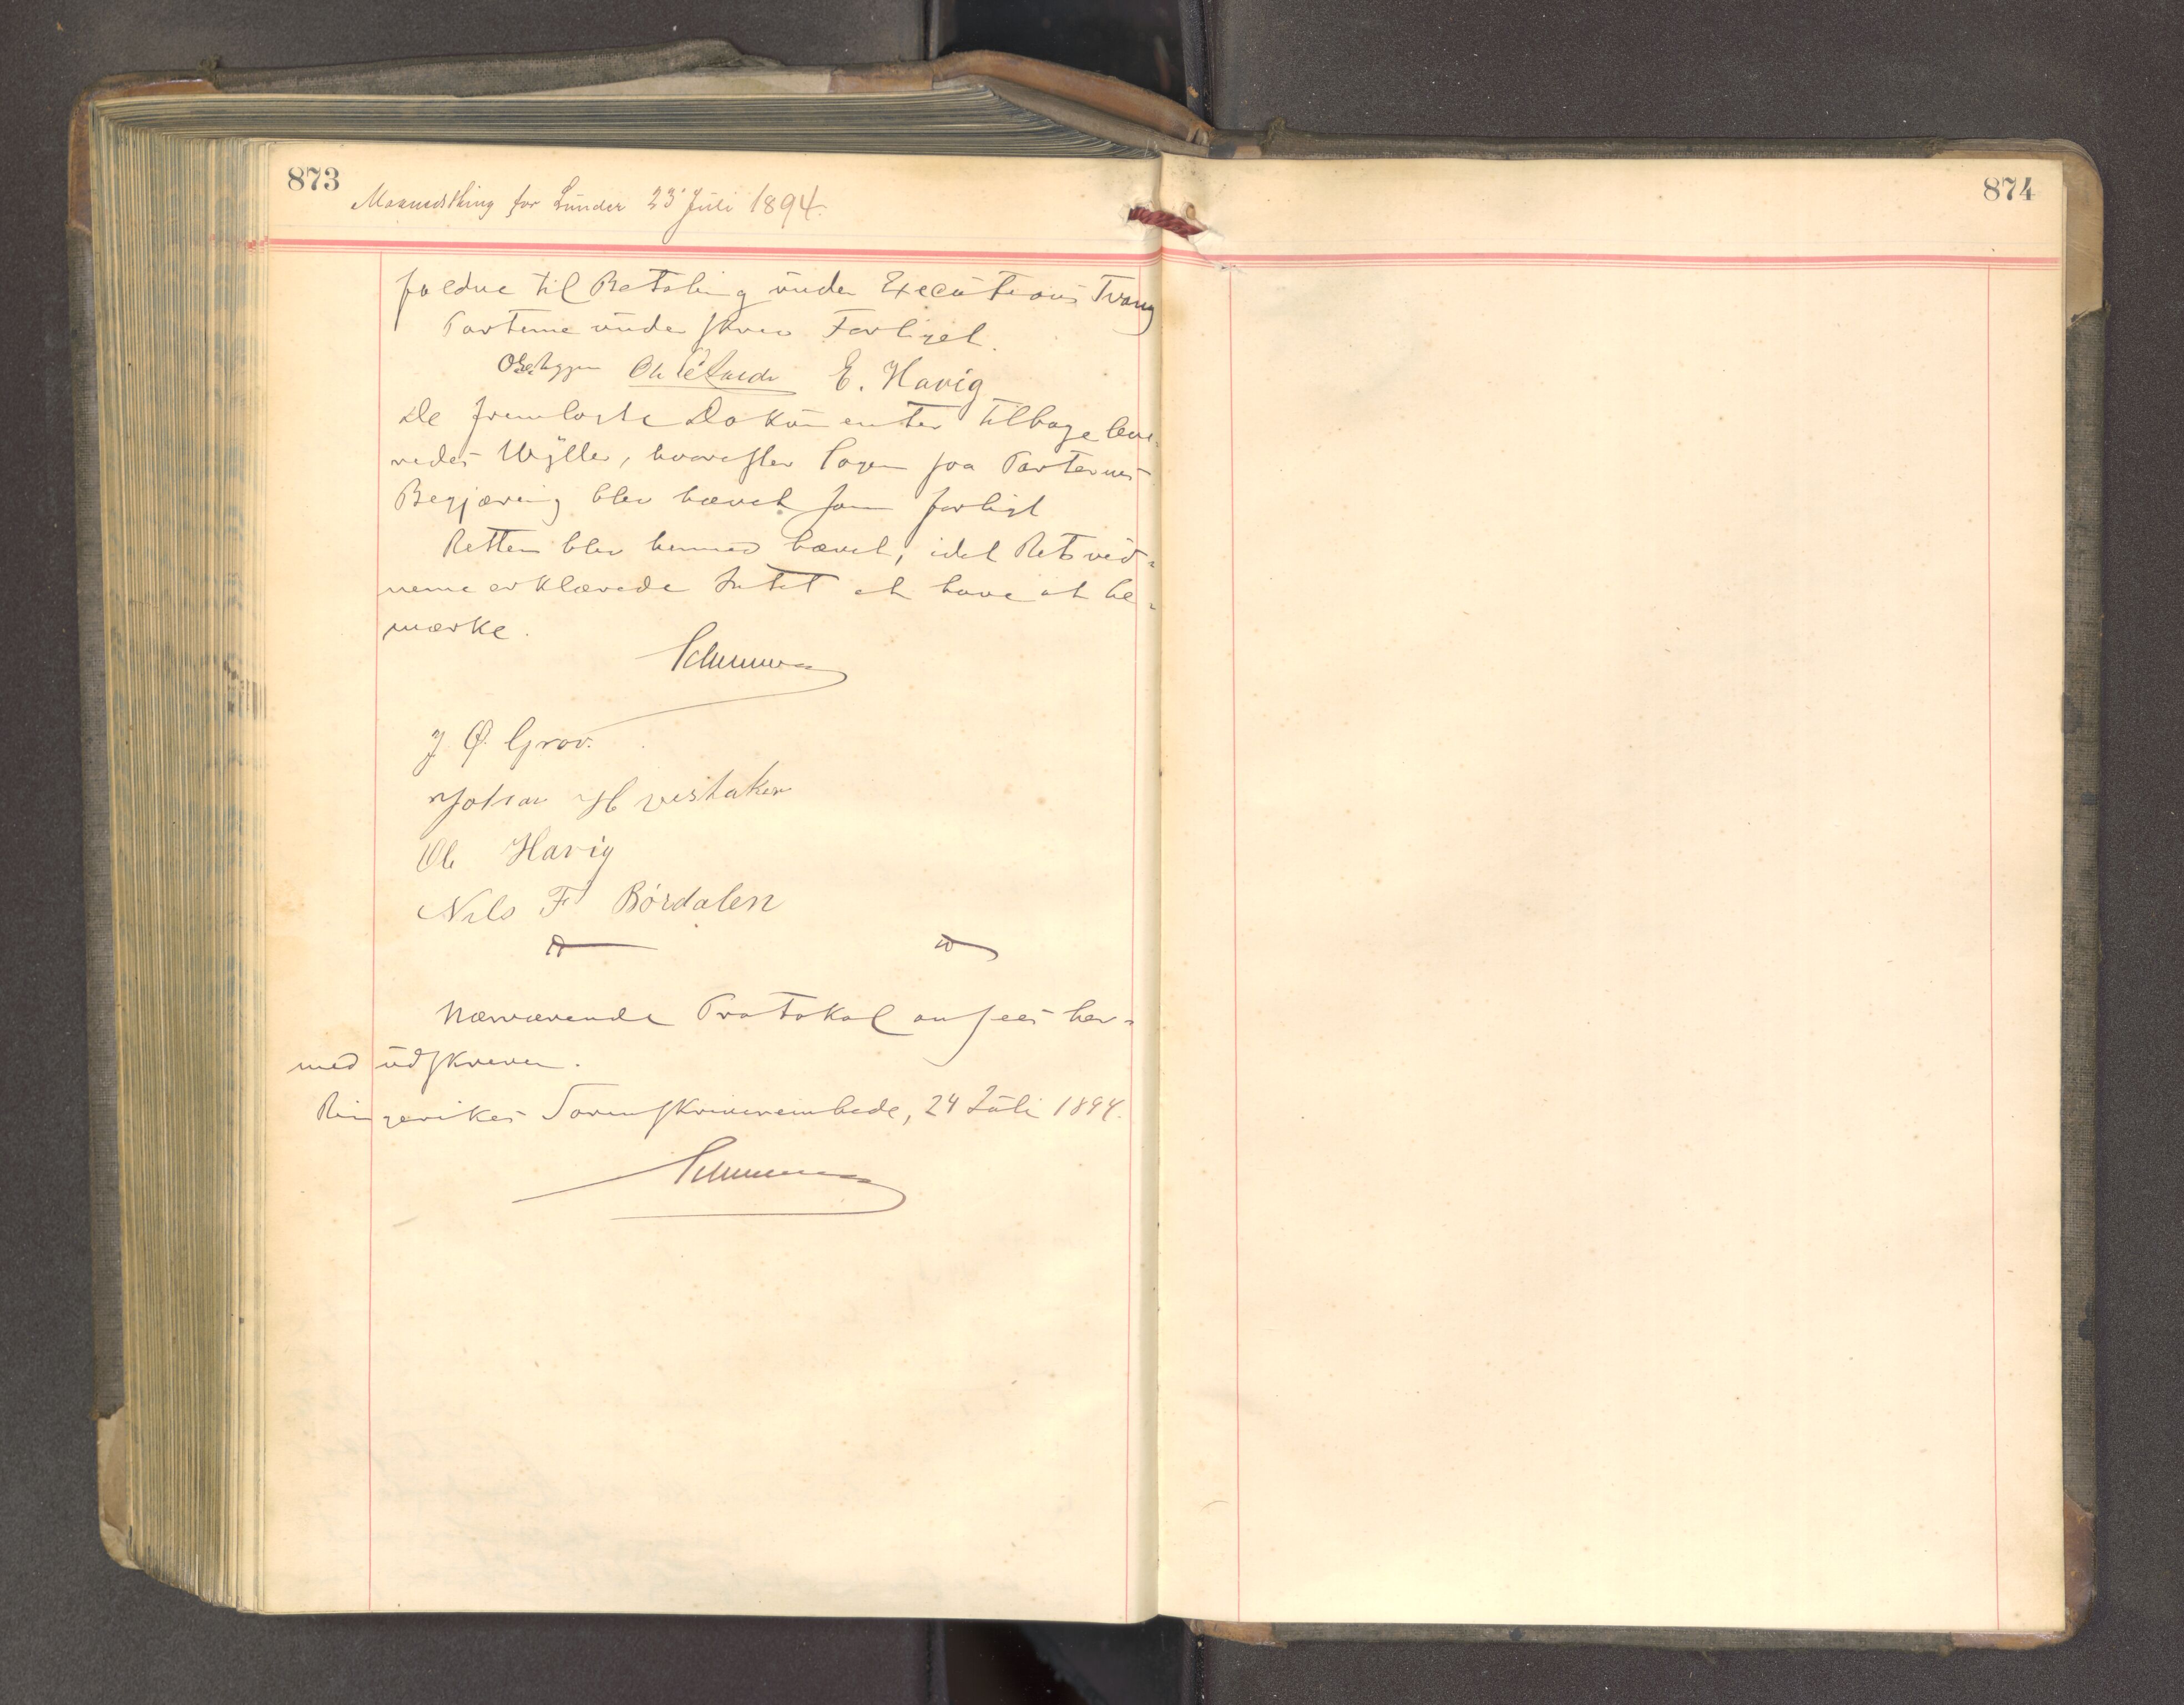 873
Maanedsthing for Lunder 23' Juli 1894.
874
faldne til Betaling under Executions Tvang
Parterne underskrev Forliget.
E. Havig
De fremlagte Dokumenter tilbageleve-
redes Wyller, hvorefter Sagen paa Parternes
Begjæring blev hævet som forligt
Retten blev hermed hævet, idet Retsvid-
nerne erklærede Intet at have at be-
mærke.
J. Ø. Grov.
Johan H vestaker
Ole Havig
Nils F Børdalen
Nærværende Protokol ansees her-
med udskreven.
Ringerikes Sorenskriverembede, 24 Juli 1894.